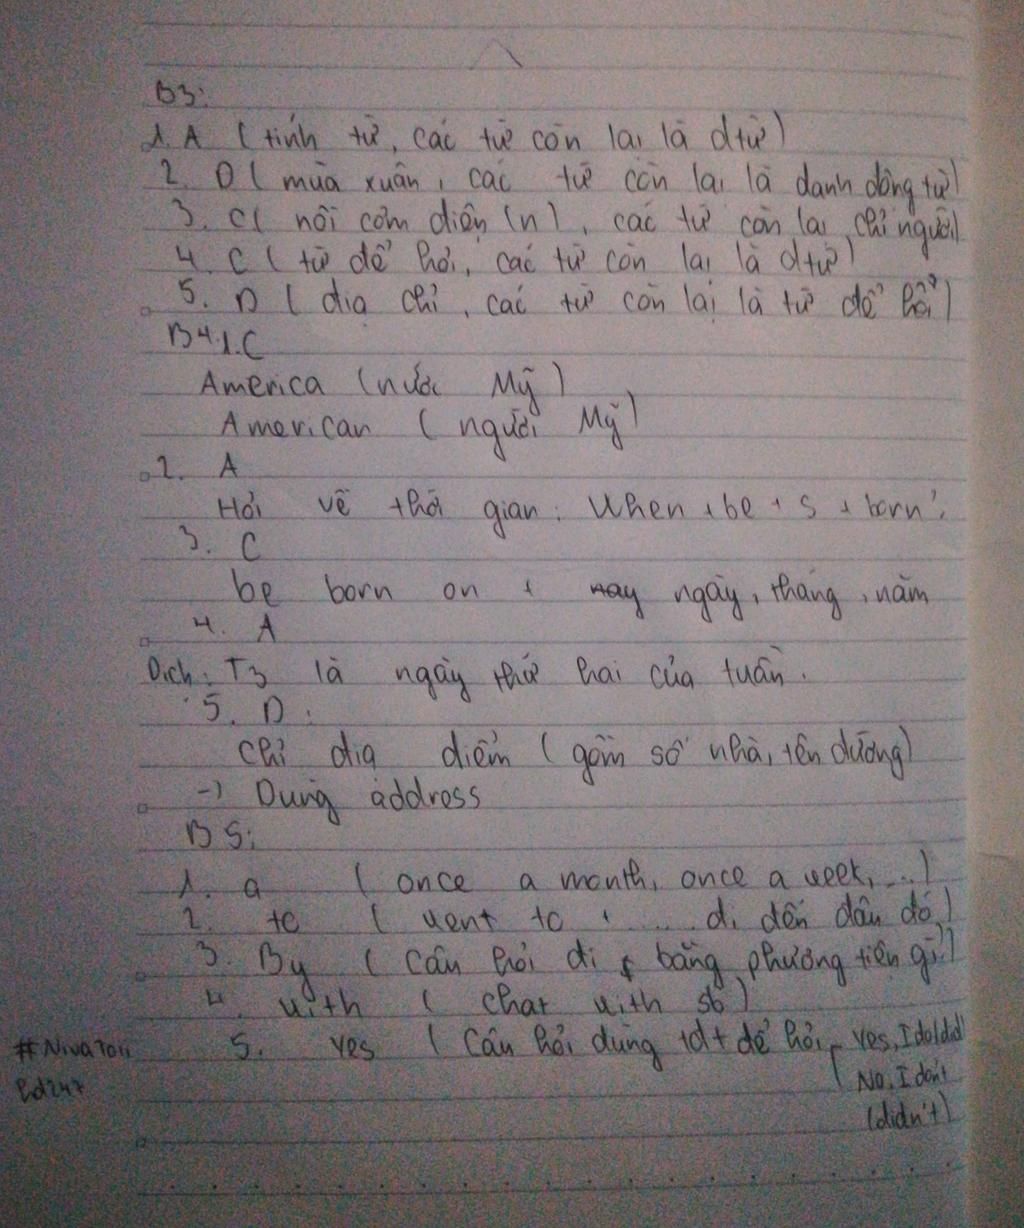 B3:
1. A (tính từ, các từ còn lại là dtừ)
2. D (mùa xuân, các từ còn lại là danh động từ)
3. C (nồi cơm điện (n), các từ còn lại chỉ người)
4. C (từ để hỏi, các từ còn lại là dtừ)
5. D (địa chỉ, các từ còn lại là từ để hỏi)
B4. 1. C
America (nước Mỹ)
American (người Mỹ)
2. A
Hỏi về thời gian: When + be + s + born?
3. C
be born on + ngày, tháng, năm
4. A
Dịch: T3 là ngày thứ hai của tuần.
5. D:
Chỉ địa điểm (gồm số nhà, tên đường)
-> Dùng address
B5:
1. a (once a month, once a week, ...)
2. to (went to + ..... đi đến đâu đó)
3. By (Câu hỏi đi bằng phương tiện gì?)
4. with (chat with sb)
5. yes (Câu hỏi dùng tđt để hỏi yes, I do/did
No, I don't
(didn't)
#NivaTori